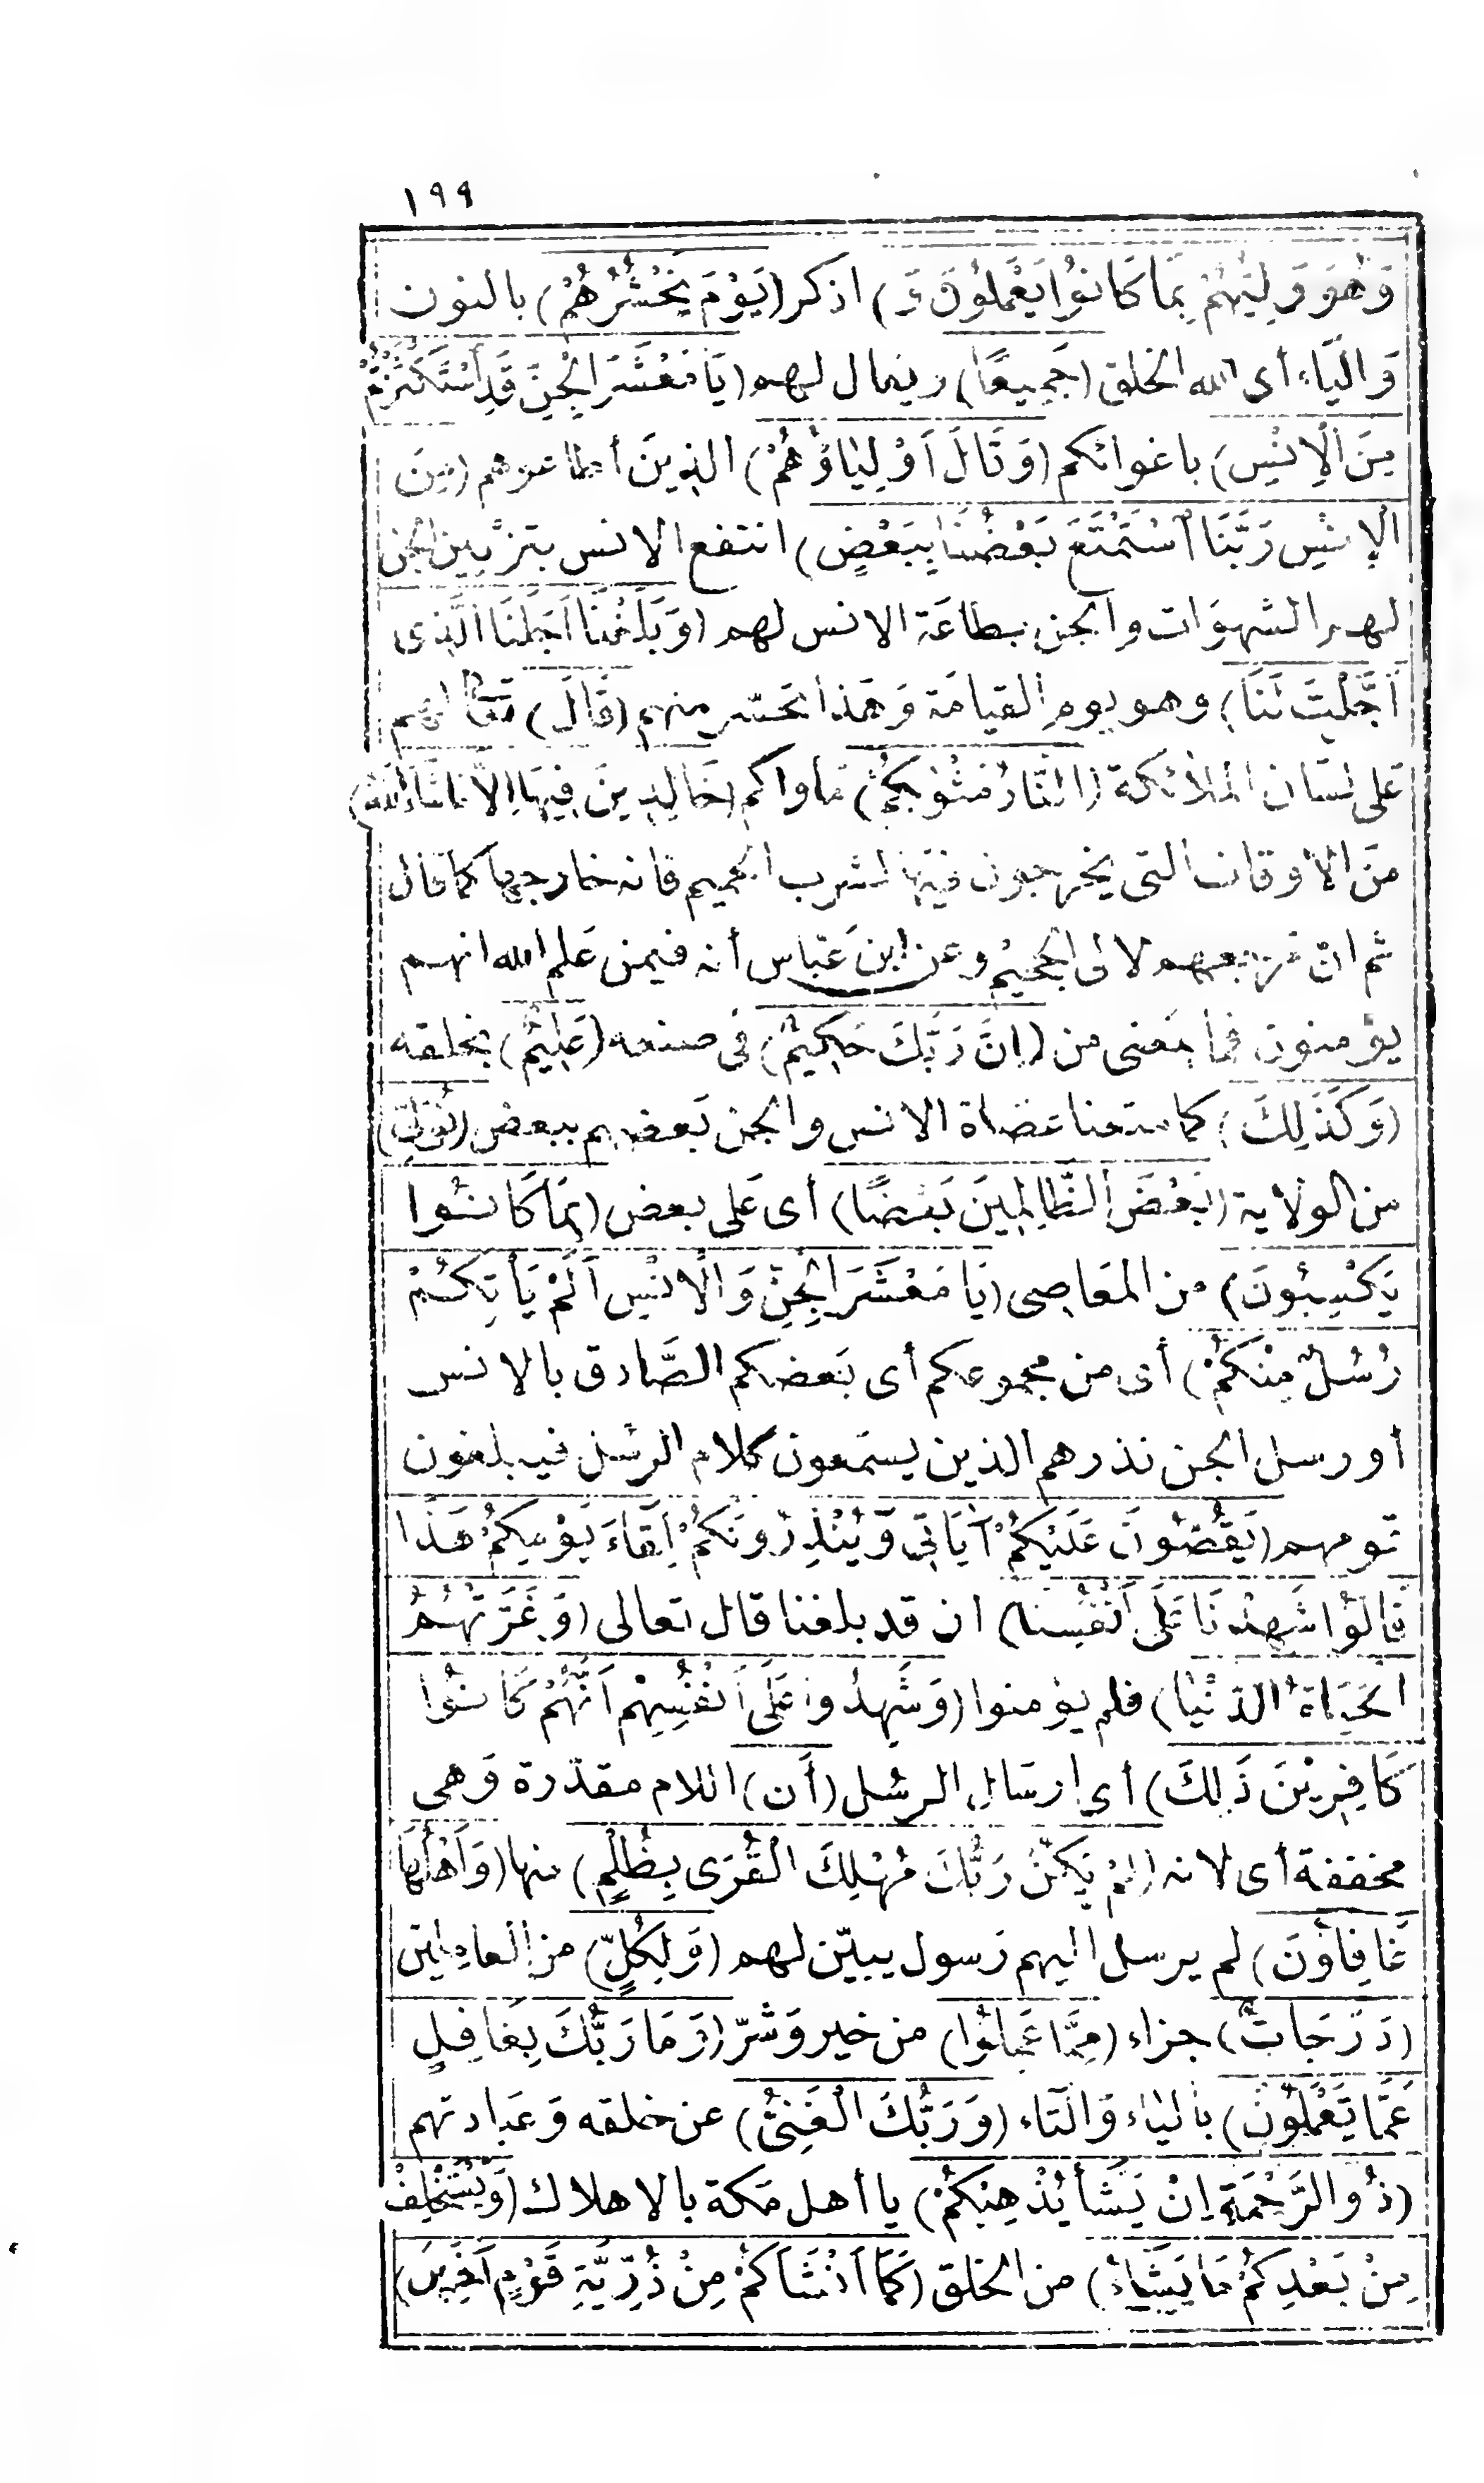 ١٩٩
وَهُوَ وَلِيُّهُمْ بِمَا كَانُوا يَعْمَلُونَ وَ) اذكر (يَوْمَ يَحْشُرُهُمْ) بالنون
وَاليَاء أى الله الخلق (جَمِيعًا) ويقال لهم (يَا مَعْشَرَ الْجِنِّ قَدِ اسْتَكْثَرْتُمْ
مِنَ الْإِنْسِ) باغوائكم (وَقَالَ أَوْلِيَاؤُهُمْ) الذِينَ أطاعوهم (مِنَ
الْإِنْسِ رَبَّنَا اسْتَمْتَعَ بَعْضُنَا بِبَعْضٍ) انتفع الانس بتزيين الجن
لهم الشهوَات والجن بطاعَة الانس لهم (وَبَلَغْنَا أَجَلَنَا الَّذِى
أَجَّلْتَ لَنَا) وهو يوم القيامَة وَهَذا تحسّر منهم (قَالَ) تعَالى لهم
عَلى لسَان الملائكة (النَّارُ مَثْوٰيكُمْ) مَاواكم (خَالِدِينَ فِيهَا إِلَّا مَا شَاءَ اللهُ)
منَ الاوقات التى يخرجون فيهَا لشرب الحميم فانه خارجها كما قال
ثم انّ مرجعهم لالى الجحيم وعن ابن عَبّاس أنه فيمن عَلم الله انهم
يؤمنون فما بمَعنى من (إِنَّ رَبَّكَ حَكِيمٌ) فى صنعه (عَلِيمٌ) بخلقه
(وَكَذَلِكَ) كما متعنا عصَاة الانس والجن بَعضهم ببعض (نُوَلِّى)
من الولاية (بَعْضَ الظَّالِمِينَ بَعْضًا) أى عَلى بعض (بِمَا كَانُوا
يَكْسِبُونَ) من المعَاصى (يَا مَعْشَرَ الْجِنِّ وَالْإِنْسِ أَلَمْ يَأْتِكُمْ
رُسُلٌ مِنْكُمْ) أى من مجموعكم أى بَعضكم الصَّادق بالانس
أو رسل الجن نذرهم الذين يستمعون كلام الرسُل فيبلغون
قومهم (يَقُصُّونَ عَلَيْكُمْ آيَاتِى وَيُنْذِرُونَكُمْ لِقَاءَ يَوْمِكُمْ هَذَا
قَالُوا شَهِدْنَا عَلَى أَنْفُسِنَا) ان قد بلغنا قال تعالى (وَغَرَّتْهُمُ
الْحَيَاةُ الدُّنْيَا) فلم يؤمنوا (وَشَهِدُوا عَلَى أَنْفُسِهِمْ أَنَّهُمْ كَانُوا
كَافِرِيْنَ ذَلِكَ) أى ارسَال الرسُل (أَن) اللام مقدّرة وَهى
مخففة أى لانه (لَمْ يَكُنْ رَبُّكَ مُهْلِكَ الْقُرَى بِظُلْمٍ) منها (وَأَهْلُهَا
غَافِلُونَ) لم يرسل اليهم رَسول يبيّن لهم (وَلِكُلٍّ) من العاملين
(دَرَجَاتٌ) جزاء (مِمَّا عَمِلُوا) من خير وَشرّ (وَمَا رَبُّكَ بِغَافِلٍ
عَمَّا يَعْمَلُونَ) باليَاء وَالتَاء (وَرَبُّكَ الْغَنِىُّ) عن خلقه وَعبَادتهم
(ذُو الرَّحْمَةِ إِنْ يَشَأْ يُذْهِبْكُمْ) يا أهل مَكة بالاهلاك (وَيَسْتَخْلِفْ
مِنْ بَعْدِكُمْ مَا يَشَاءُ) من الخلق (كَمَا أَنْشَأَكُمْ مِنْ ذُرِّيَّةِ قَوْمٍ آخَرِينَ)